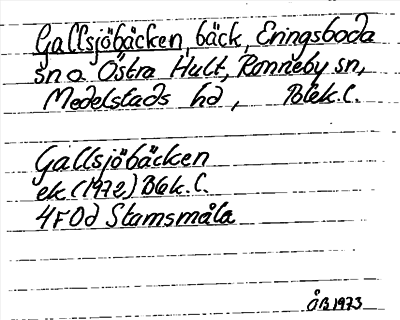 Gallsjöbäcken, bäck, Eringsboda
sn o Östra Hult, Ronneby sn,
Medelstads hd, Blek. l.
Gallsjöbäcken
ek (1972) Blek. l.
4F0d Stamsmåla
ÅB 1973